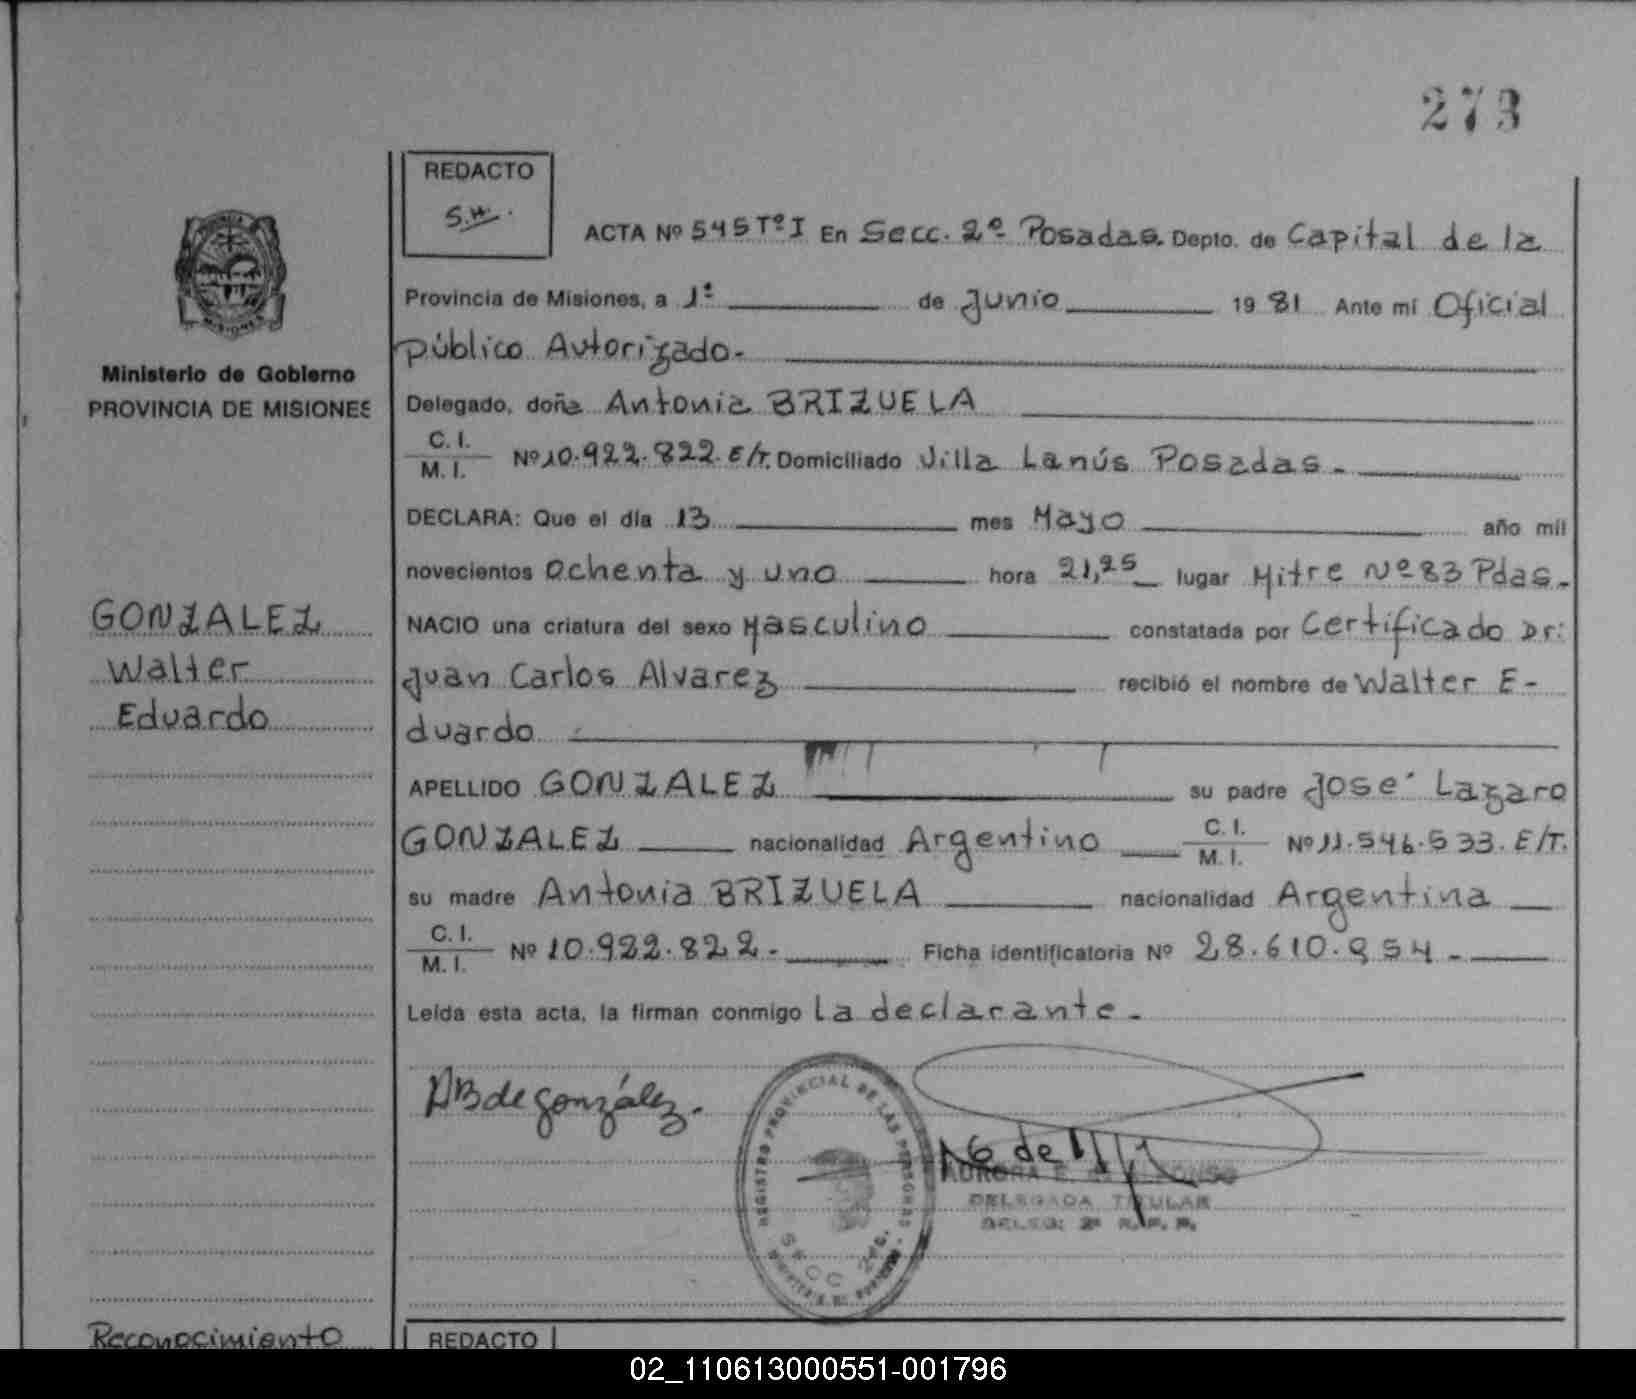 273
REDACTO
S.W.
ACTA Nº 545 Tº I En Secc. 2º Posadas. Depto. de Capital de la
Provincia de Misiones, a 1º de Junio 1981 Ante mí Oficial
público Autorizado-
Ministerio de Gobierno
PROVINCIA DE MISIONES
Delegado, doña Antonia BRIZUELA
C. I.
M. I. Nº 10.922.822. E/T. Domiciliado Villa Lanús Posadas-
DECLARA: Que el día 13 mes Mayo año mil
novecientos Ochenta y uno hora 21,25 lugar Mitre Nº 83 Pdas-
GONZALEZ
Walter
Eduardo
NACIO una criatura del sexo Masculino constatada por Certificado Dr:
Juan Carlos Alvarez recibió el nombre de Walter E-
duardo
APELLIDO GONZALEZ su padre José Lazaro
GONZALEZ nacionalidad Argentino C. I.
M. I. Nº 11.546.533. E/T.
su madre Antonia BRIZUELA nacionalidad Argentina
C. I.
M. I. Nº 10.922.822- Ficha identificatoria Nº 28.610.954-
Leída esta acta, la firman conmigo la declarante-
AB de González.
REGISTRO PROVINCIAL DE LAS PERSONAS
SECC 2da.
DELEGADA TITULAR
DELEG: 2ª R.P.P.
Reconocimiento
REDACTO
02_110613000551-001796